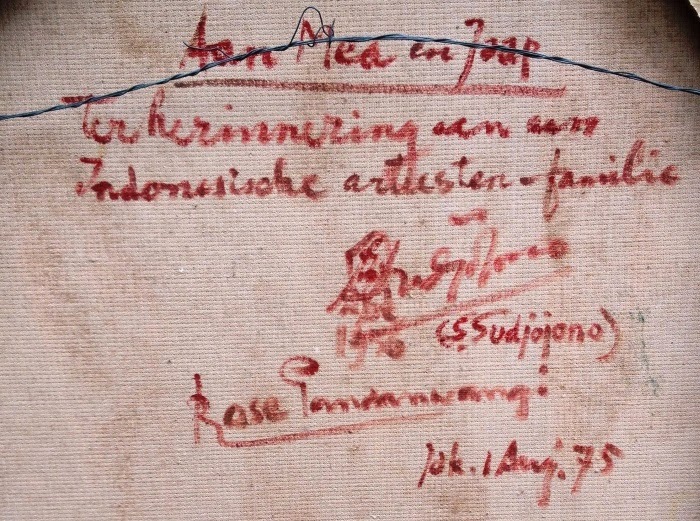 Aan Mea en Jaap
Ter herinnering aan een
Indonesische artiesten-familie
(S. Sudjojono)
Rose Pandanwangi
Jak. 1 Aug. 75